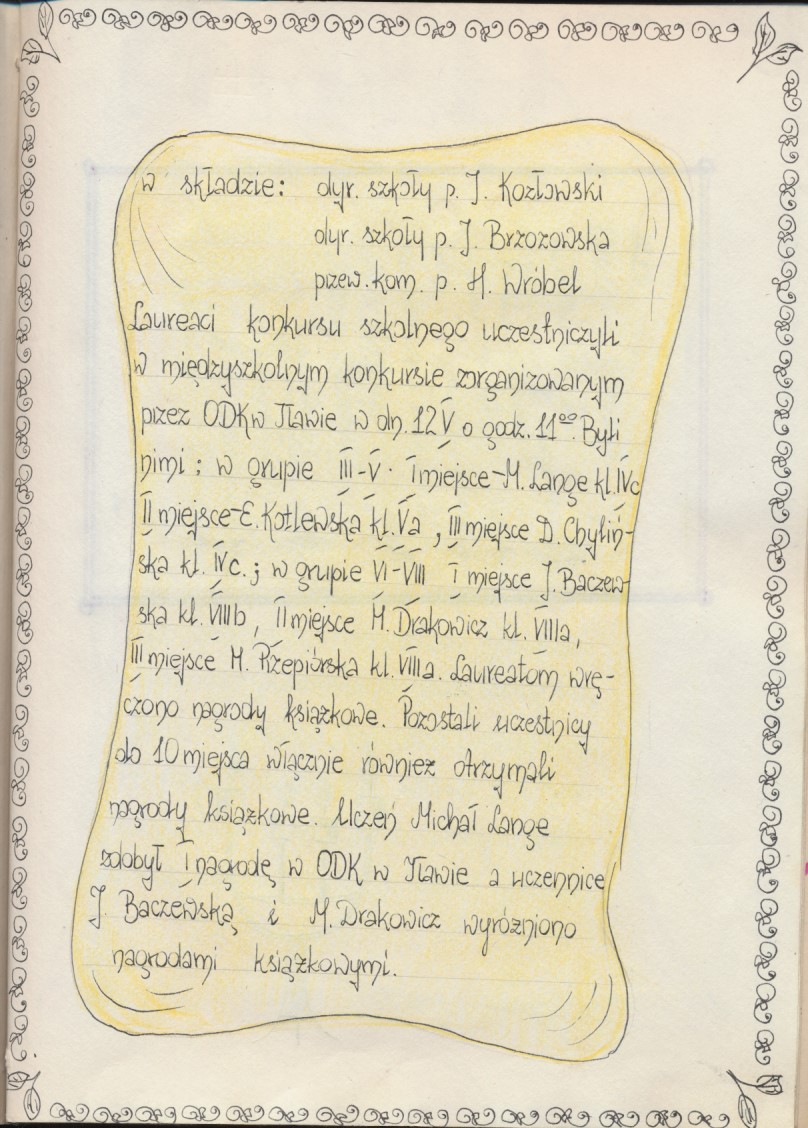 w składzie: dyr. szkoły p. J. Kozłowski
dyr. szkoły p. J. Brzozowska
przew. kom. p. H. Wróbel
Laureaci konkursu szkolnego uczestniczyli
w międzyszkolnym konkursie zorganizowanym
przez ODK w Iławie w dn. 12 V o godz. 11⁰⁰. Byli
nimi; w grupie III-V. I miejsce - M. Lange kl. IVc
II miejsce - E. Kotlewska kl. Va, III miejsce D. Chyliń-
ska kl. IVc.; w grupie VI-VIII I miejsce J. Baczew-
ska kl. VIIIb, II miejsce M. Drakowicz kl. VIIIa,
III miejsce M. Rzepiórska kl. VIIIa. Laureatom wrę-
czono nagrody książkowe. Pozostali uczestnicy
do 10 miejsca włącznie również otrzymali
nagrody książkowe. Uczeń Michał Lange
zdobył I nagrodę w ODK w Iławie a uczennice
J. Baczewską i M. Drakowicz wyróżniono
nagrodami książkowymi.